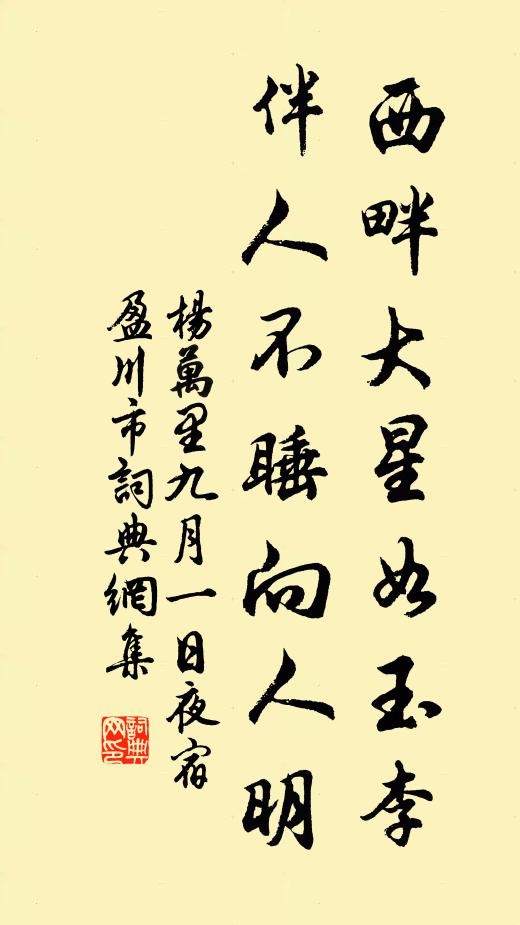 西畔大星如玉李
伴人不睡向人明
楊萬里九月一日夜宿
盈川市詞典網集
詞典网印